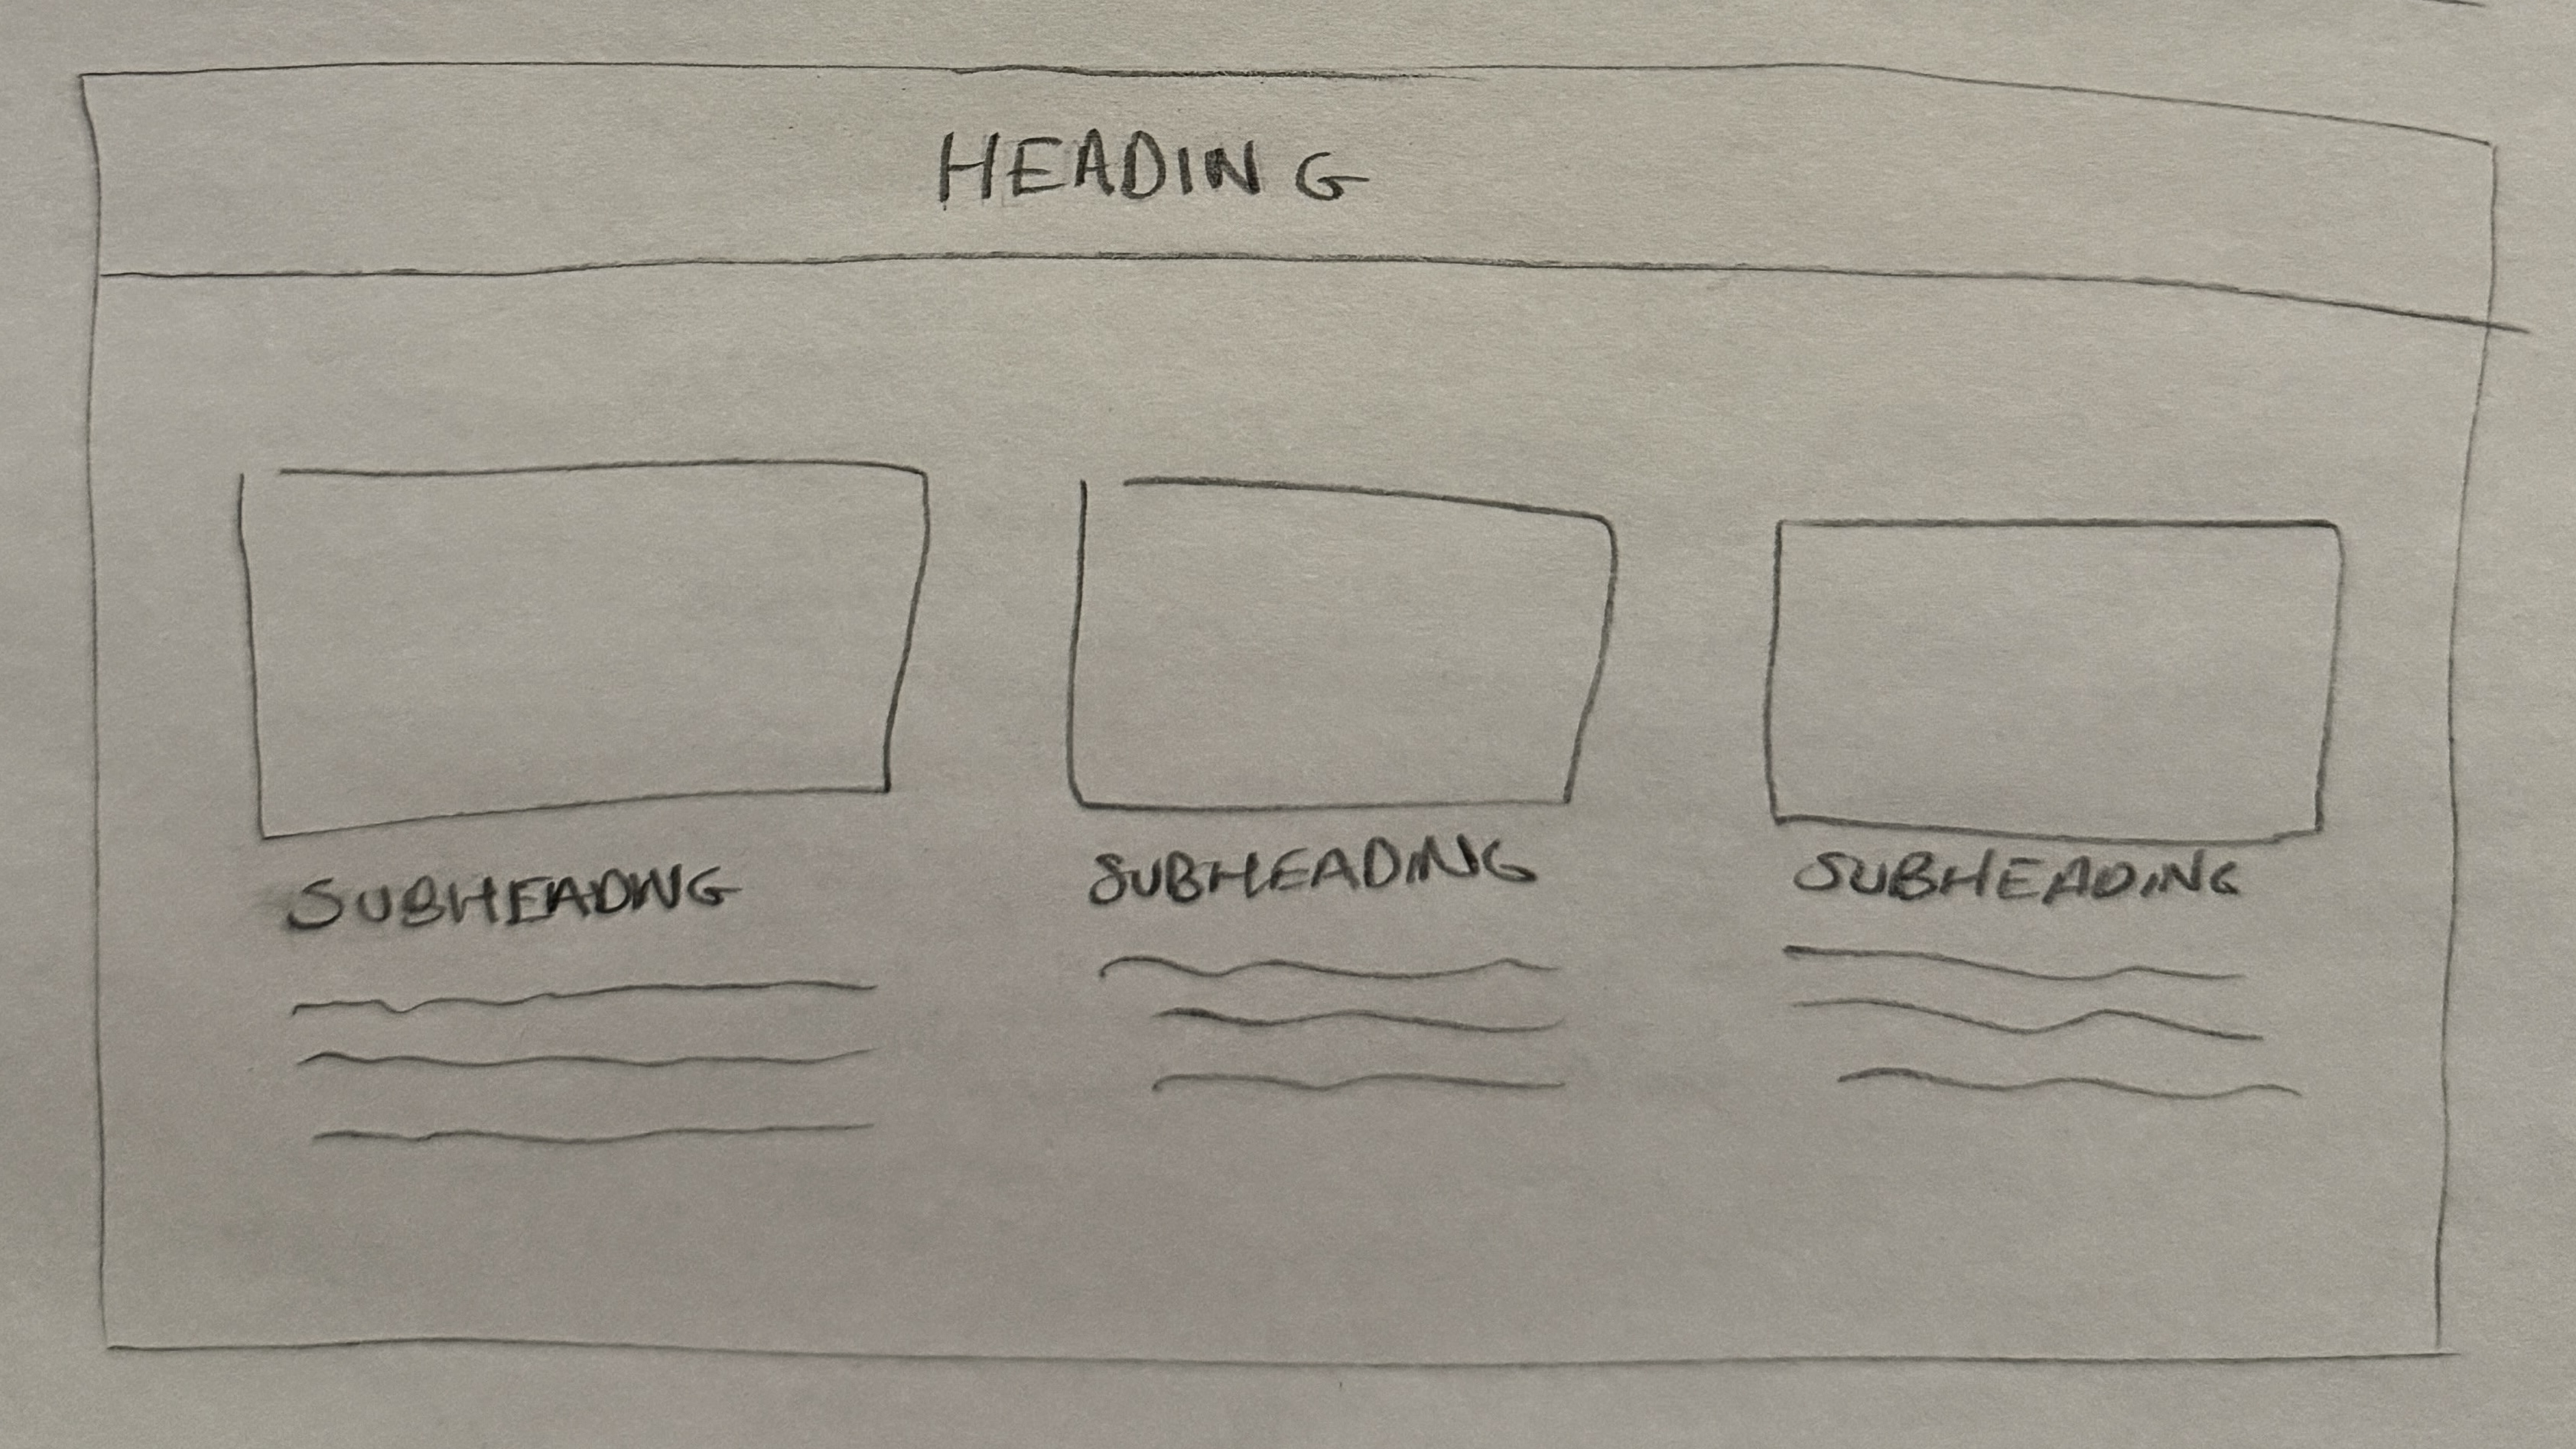 HEADING
SUBHEADING
SUBHEADING
SUBHEADING